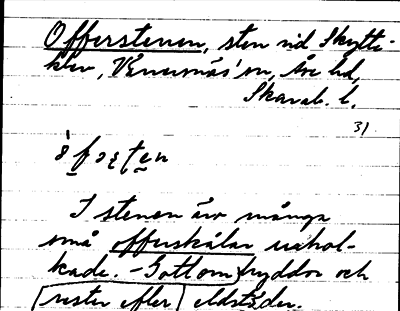 Offerstenen, sten vid Skytte-
klev, Vänersnäs'sn, Åse hd,
Skarab. l.
31
I stenen äro många
små offerskålar urhol-
kade. - Gott om hyddor och
rester efter eldstäder.